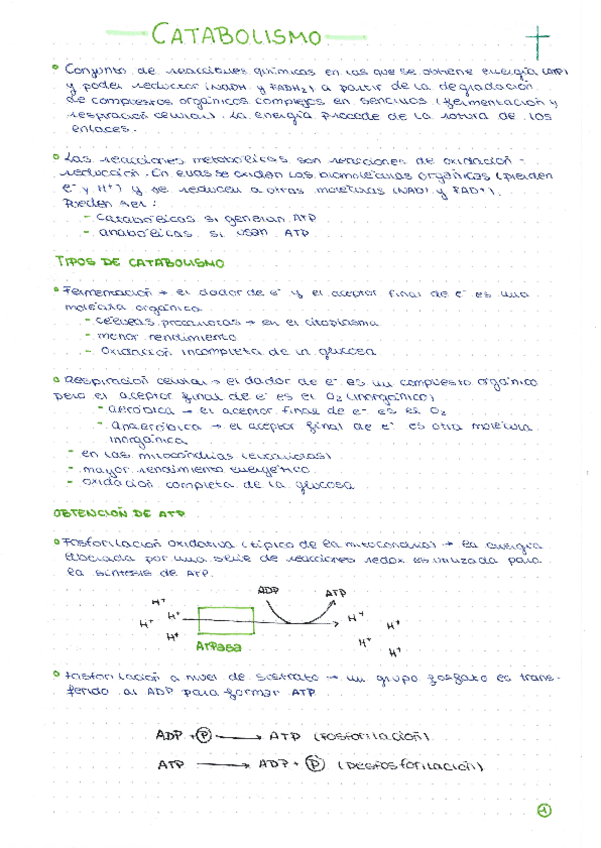 CATABOLISMO
Conjunto de reacciones químicas en las que se obtiene energía (ATP)
y poder reductor (NADH y FADH₂) a partir de la degradación
de compuestos orgánicos complejos en sencillos (fermentación y
respiración celular). La energía procede de la rotura de los
enlaces.
Las reacciones metabólicas son reacciones de oxidación -
reducción. En ellas se oxidan las biomoléculas orgánicas (pierden
e⁻ y H⁺) y se reducen a otras moléculas (NAD⁺ y FAD⁺).
Pueden ser:
- catabólicas si generan ATP
- anabólicas si usan ATP
TIPOS DE CATABOLISMO
Fermentación → el dador de e⁻ y el aceptor final de e⁻ es una
molécula orgánica
- células procariotas → en el citoplasma
- menor rendimiento
- oxidación incompleta de la glucosa
Respiración celular → el dador de e⁻ es un compuesto orgánico
pero el aceptor final de e⁻ es el O₂ (inorgánico)
- aeróbica → el aceptor final de e⁻ es el O₂
- anaeróbica → el aceptor final de e⁻ es otra molécula
inorgánica
- en las mitocondrias (eucariotas)
- mayor rendimiento energético
- oxidación completa de la glucosa
OBTENCIÓN DE ATP
Fosforilación oxidativa (típico de la mitocondria) → la energía
liberada por una serie de reacciones redox es utilizada para
la síntesis de ATP.
ADP ATP
H⁺ H⁺ H⁺ H⁺ H⁺ H⁺ H⁺ H⁺
ATPasa
Fosforilación a nivel de sustrato → un grupo fosfato es trans-
ferido al ADP para formar ATP
ADP + P → ATP (fosforilación)
ATP → ADP + P (Desfosforilación)
1